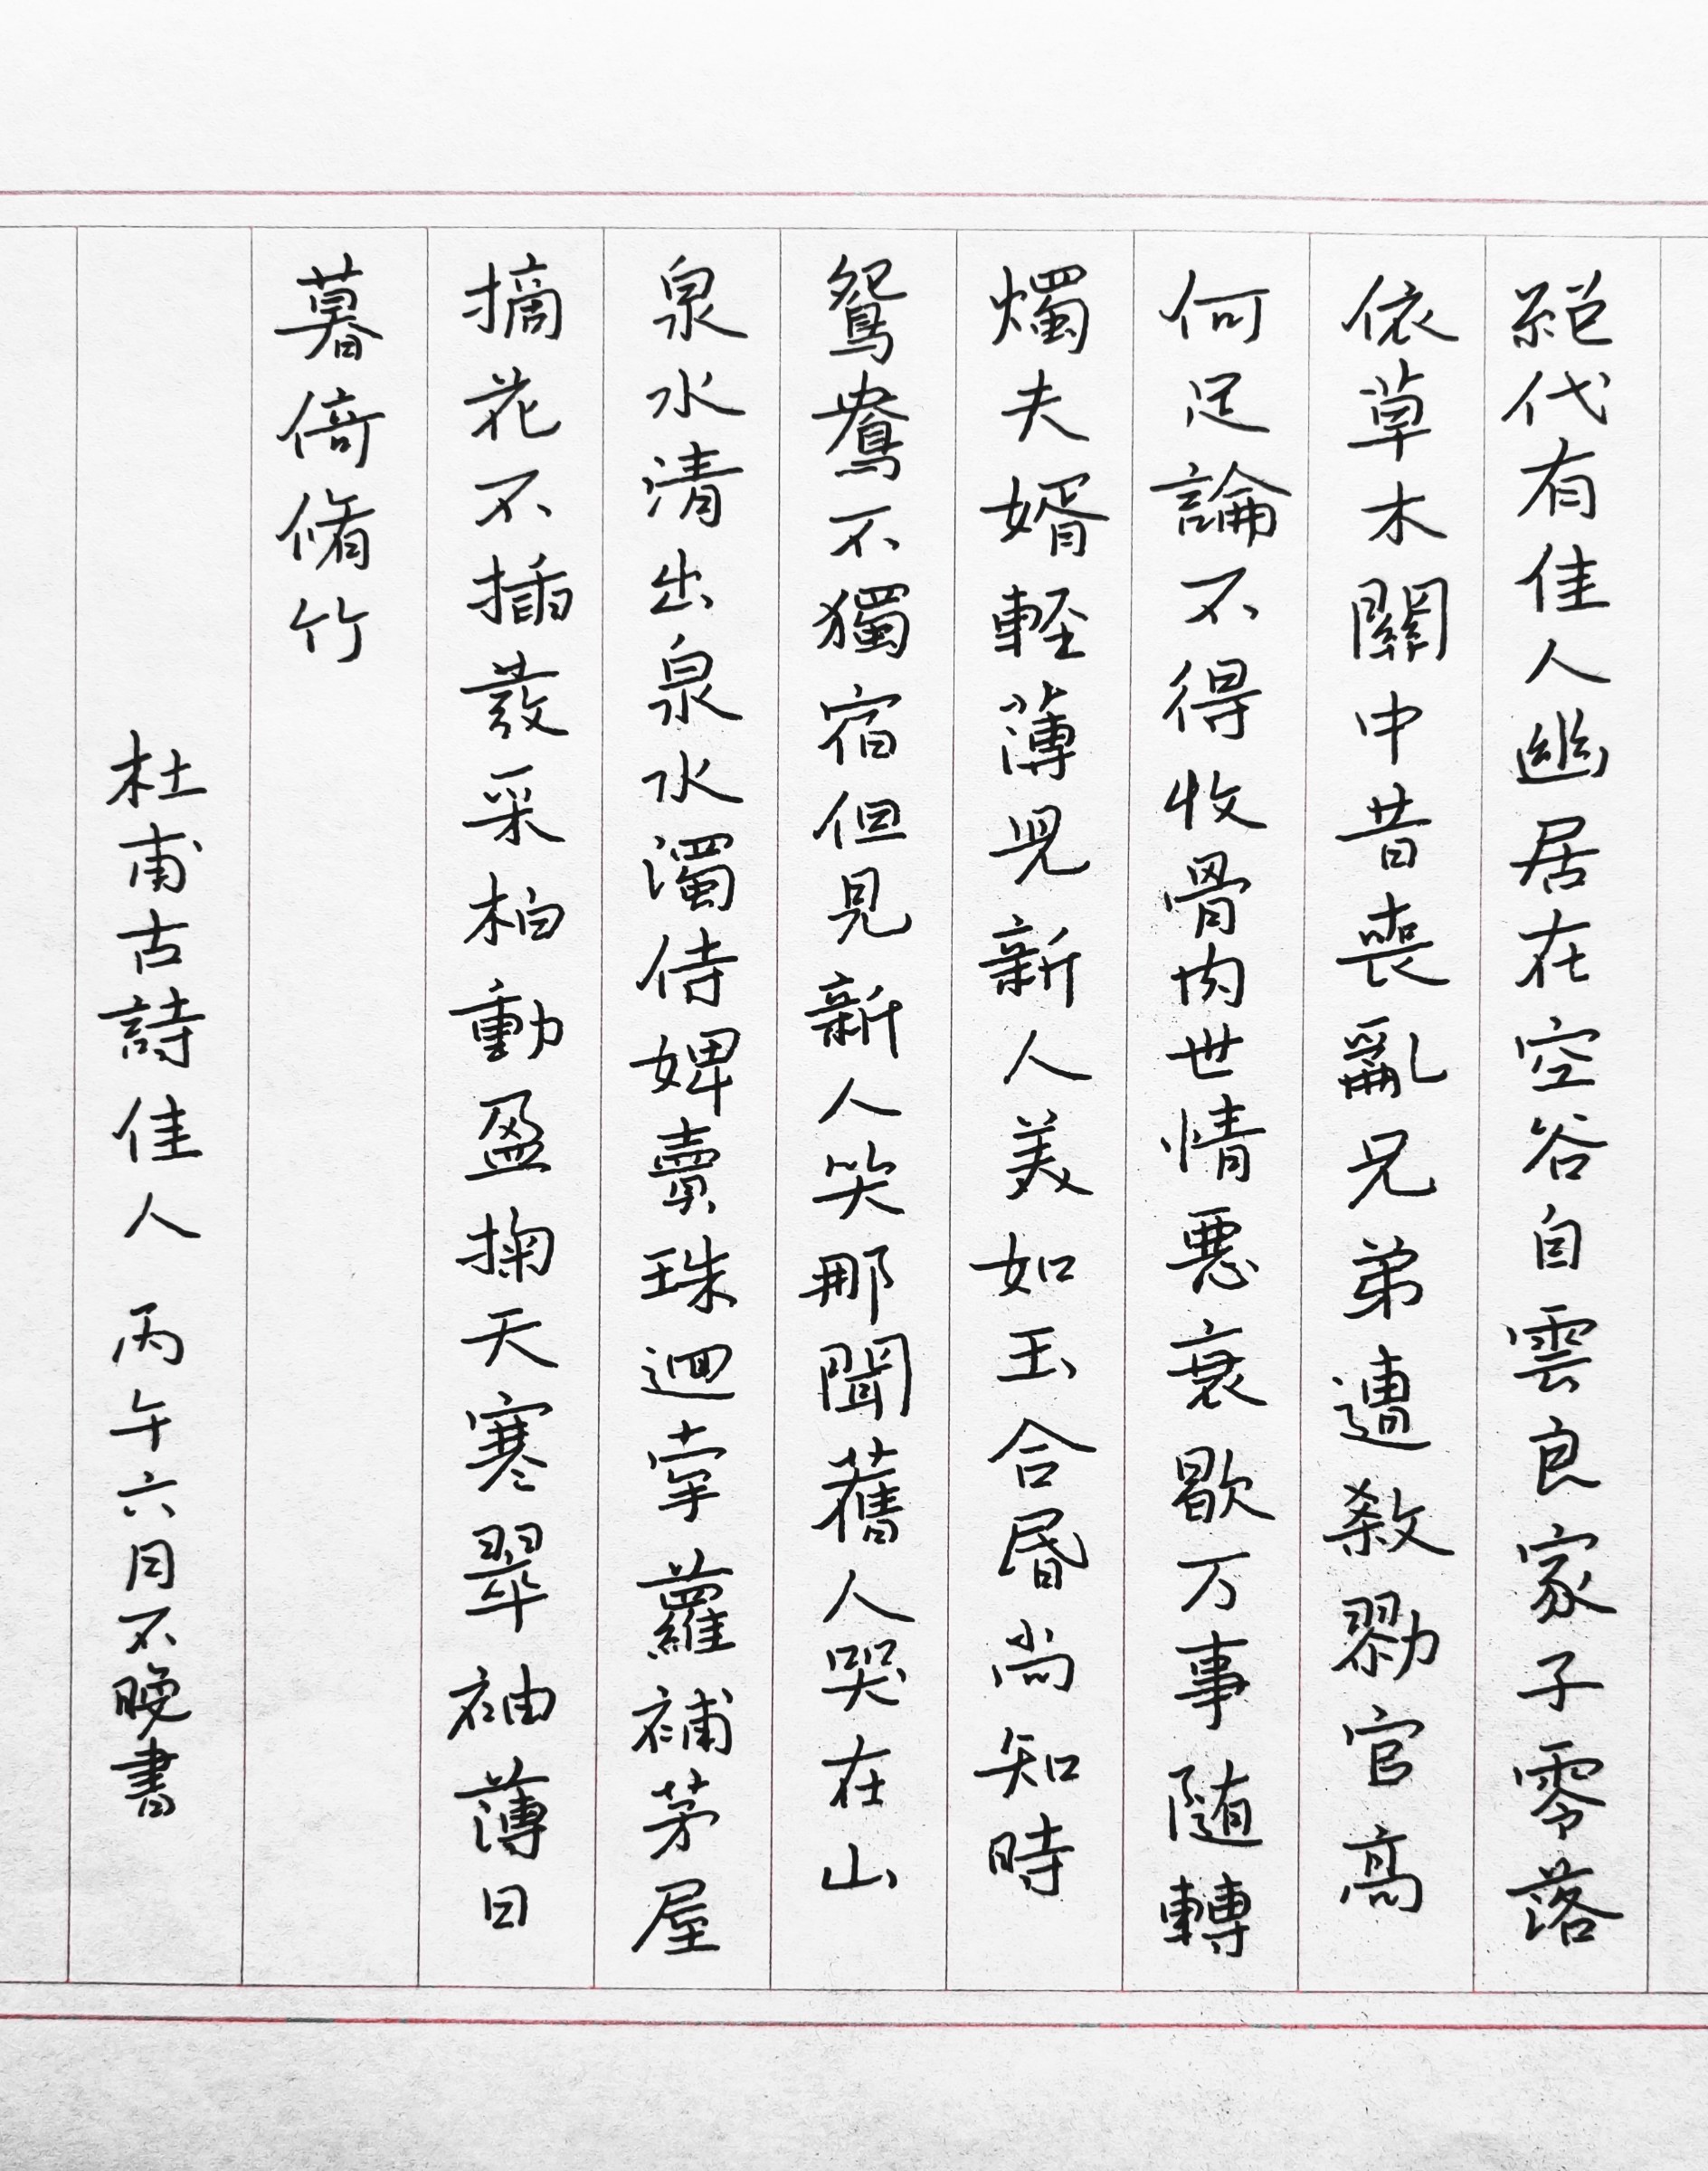 絕代有佳人幽居在空谷自雲良家子零落
依草木關中昔喪亂兄弟遭殺勠官高
何足論不得收骨肉世情惡衰歇万事随轉
燭夫婿輕薄兒新人美如玉合昏尚知時
鴛鴦不獨宿但見新人笑那聞舊人哭在山
泉水清出泉水濁侍婢賣珠迴牽蘿補茅屋
摘花不插髮采柏動盈掬天寒翠袖薄日
暮倚脩竹
杜甫古詩佳人 丙午六月不晚書